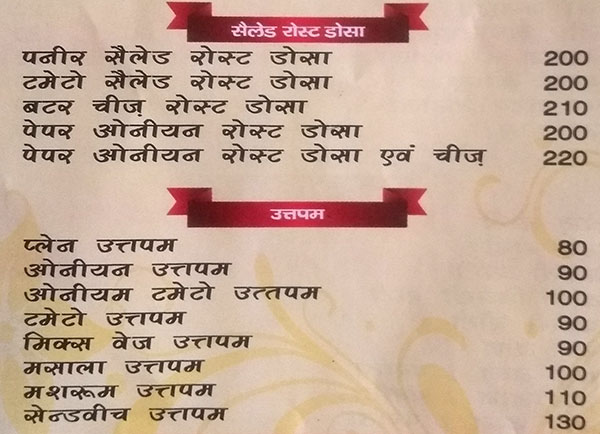 सैलेड रोस्ट डोसा
पनीर सैलेड रोस्ट डोसा 200
टमेटो सैलेड रोस्ट डोसा 200
बटर चीज़ रोस्ट डोसा 210
पेपर ओनीयन रोस्ट डोसा 200
पेपर ओनीयन रोस्ट डोसा एवं चीज़ 220
उत्तपम
प्लेन उत्तपम 80
ओनीयन उत्तपम 90
ओनीयम टमेटो उत्तपम 100
टमेटो उत्तपम 90
मिक्स वेज उत्तपम 90
मसाला उत्तपम 100
मशरूम उत्तपम 110
सेन्डवीच उत्तपम 130